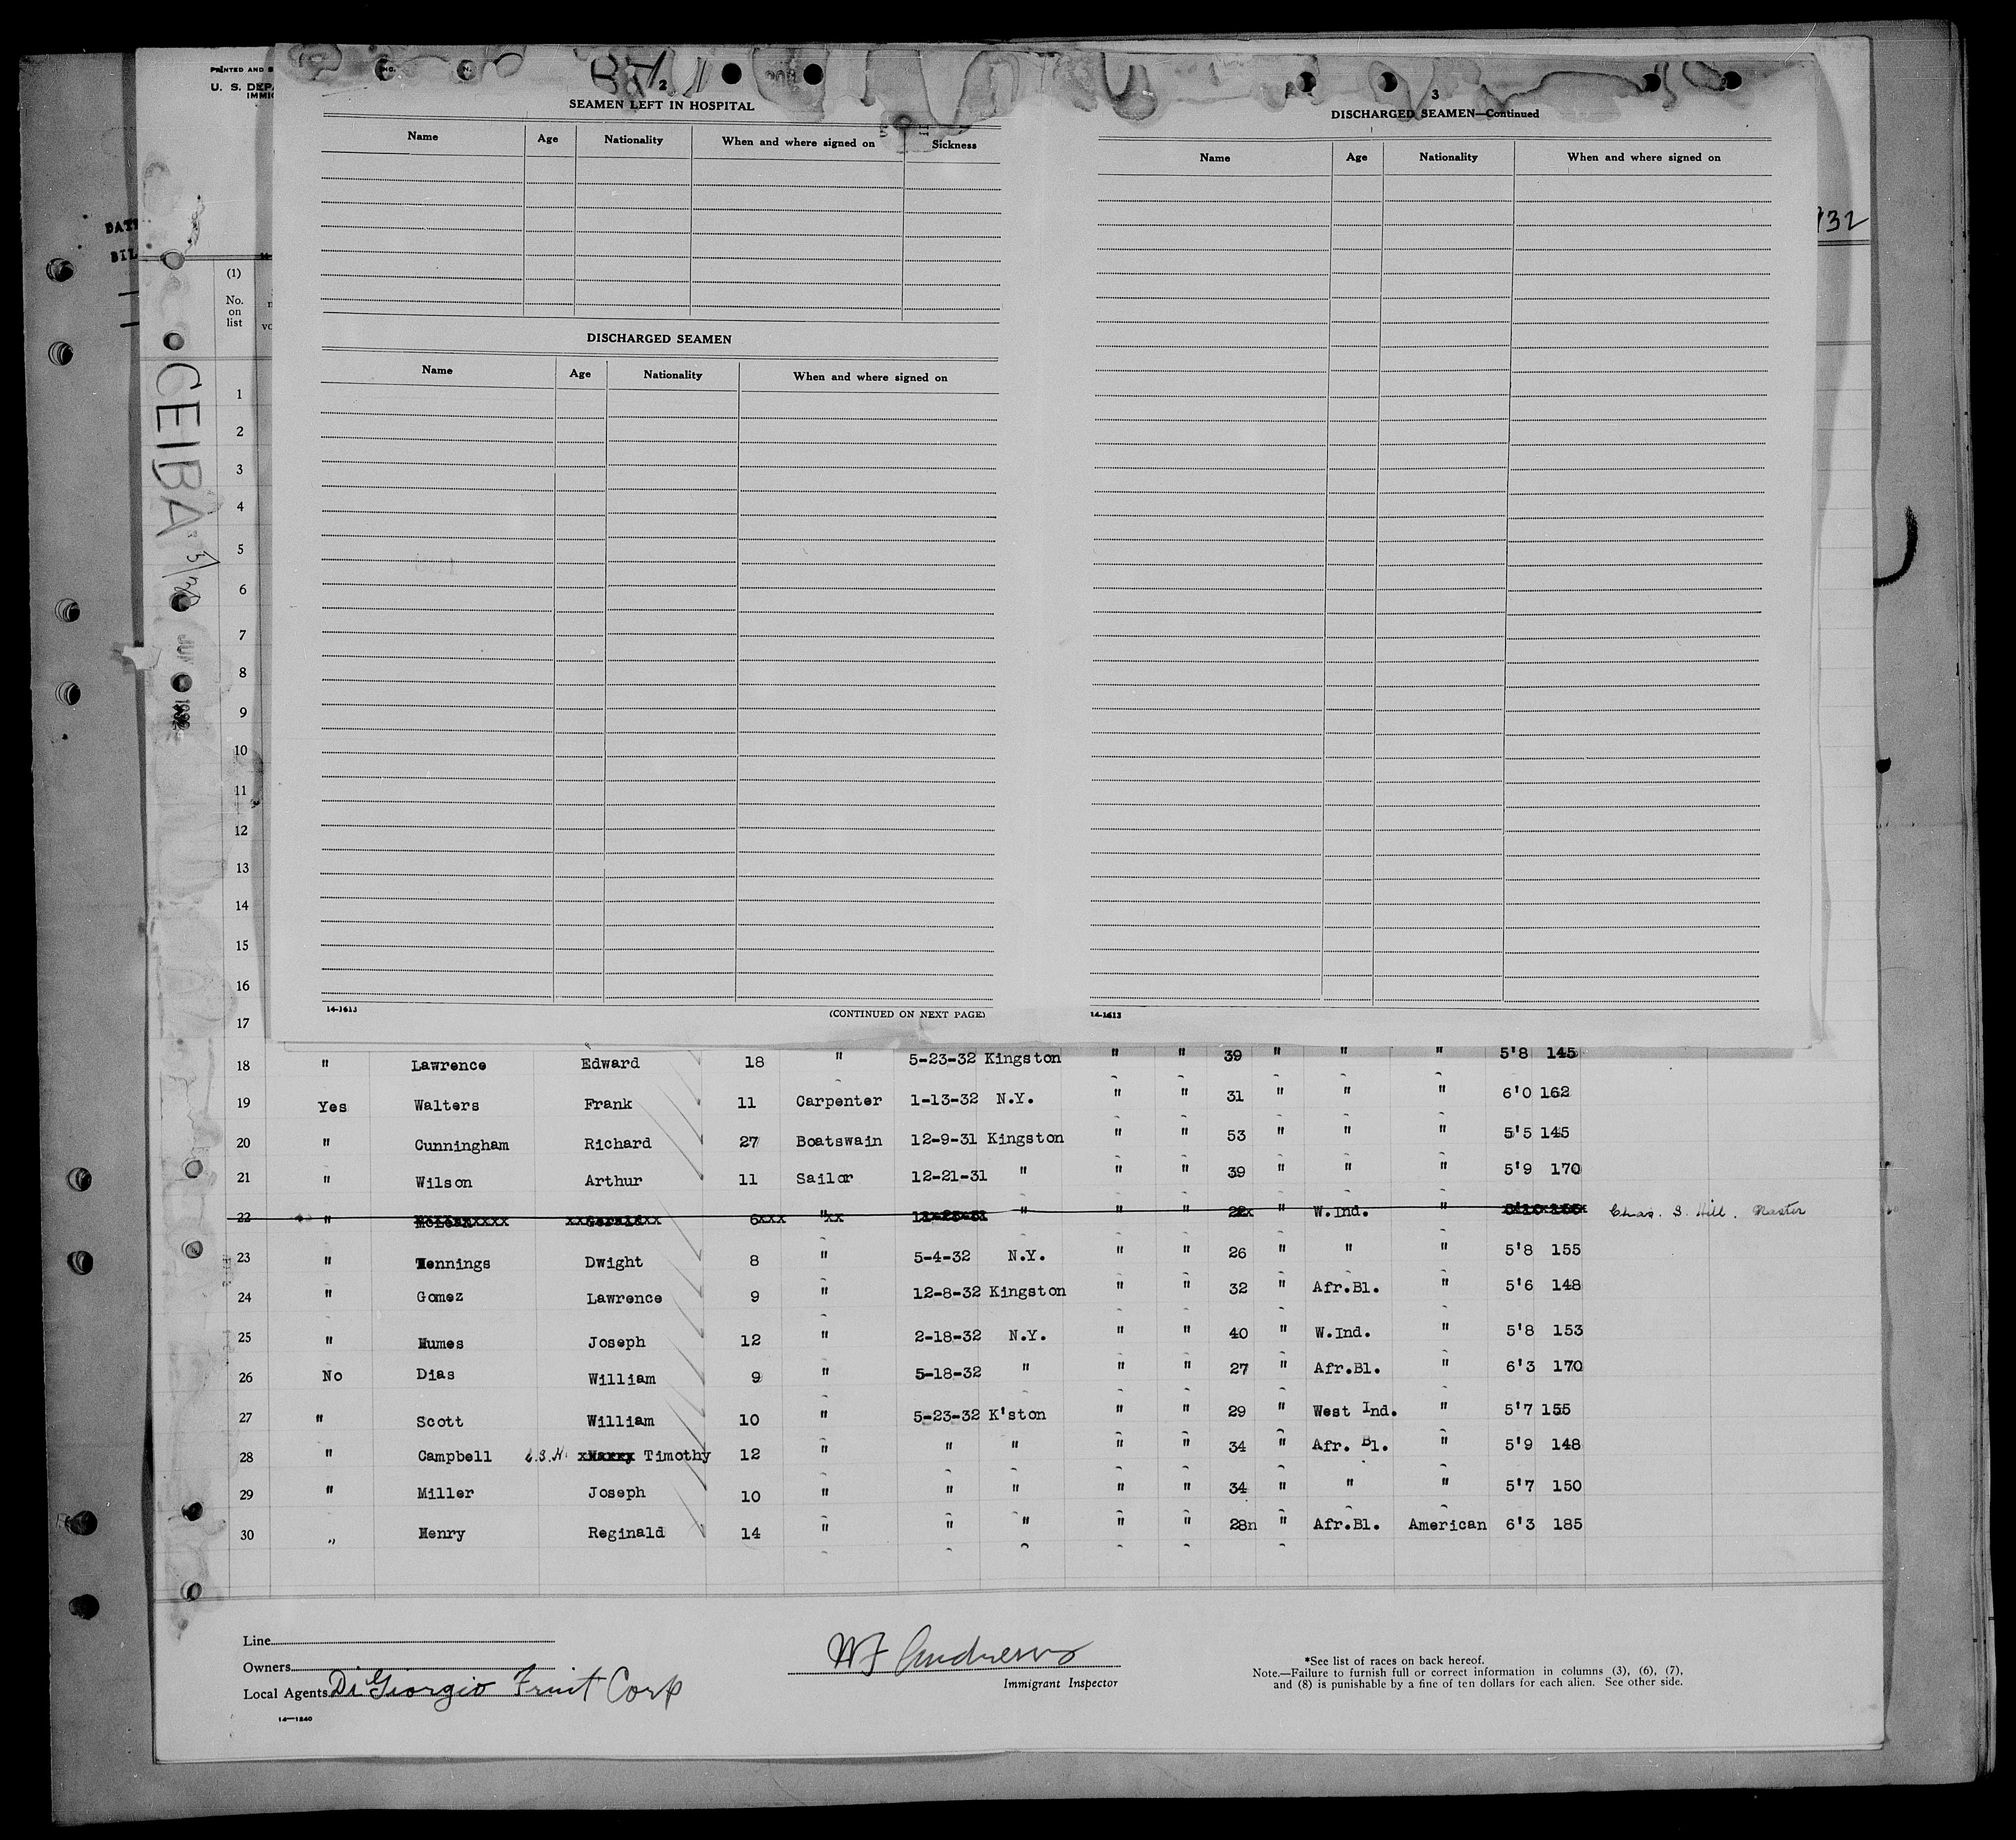 PRINTED AND
U. S. DEPA
IMMIG
2
SEAMEN LEFT IN HOSPITAL
Name Age Nationality When and where signed on Sickness
DISCHARGED SEAMEN
Name Age Nationality When and where signed on
14-1613 (CONTINUED ON NEXT PAGE)
3
DISCHARGED SEAMEN—Continued
Name Age Nationality When and where signed on
14-1613
DATE
/32
(1)
No.
on
list
CEIBA
1
2
3
4
5
6
7
8
9
10
11
12
13
14
15
16
17
18 " Lawrence Edward 18 " 5-23-32 Kingston " " 39 " " " 5'8 145
19 Yes Walters Frank 11 Carpenter 1-13-32 N.Y. " " 31 " " " 6'0 162
20 " Cunningham Richard 27 Boatswain 12-9-31 Kingston " " 53 " " " 5'5 145
21 " Wilson Arthur 11 Sailor 12-21-31 " " " 39 " " " 5'9 170
22 " 6xxx "xx " " " W.Ind. " Chas. S. Hill. Master
23 " Hennings Dwight 8 " 5-4-32 N.Y. " " 26 " " " 5'8 155
24 " Gomez Lawrence 9 " 12-8-32 Kingston " " 32 " Afr.Bl. " 5'6 148
25 " Humes Joseph 12 " 2-18-32 N.Y. " " 40 " W.Ind. " 5'8 153
26 No Dias William 9 " 5-18-32 " " " 27 " Afr.Bl. " 6'3 170
27 " Scott William 10 " 5-23-32 K'ston " " 29 " West Ind. " 5'7 155
28 " Campbell C.S.H. xHarry Timothy 12 " " " " " 34 " Afr. Bl. " 5'9 148
29 " Miller Joseph 10 " " " " " 34 " " " 5'7 150
30 " Henry Reginald 14 " " " " " 28n " Afr.Bl. American 6'3 185
Line
Owners
Local Agents DiGiorgio Fruit Corp
14—1240
W F Andrews
Immigrant Inspector
*See list of races on back hereof.
Note.—Failure to furnish full or correct information in columns (3), (6), (7),
and (8) is punishable by a fine of ten dollars for each alien. See other side.